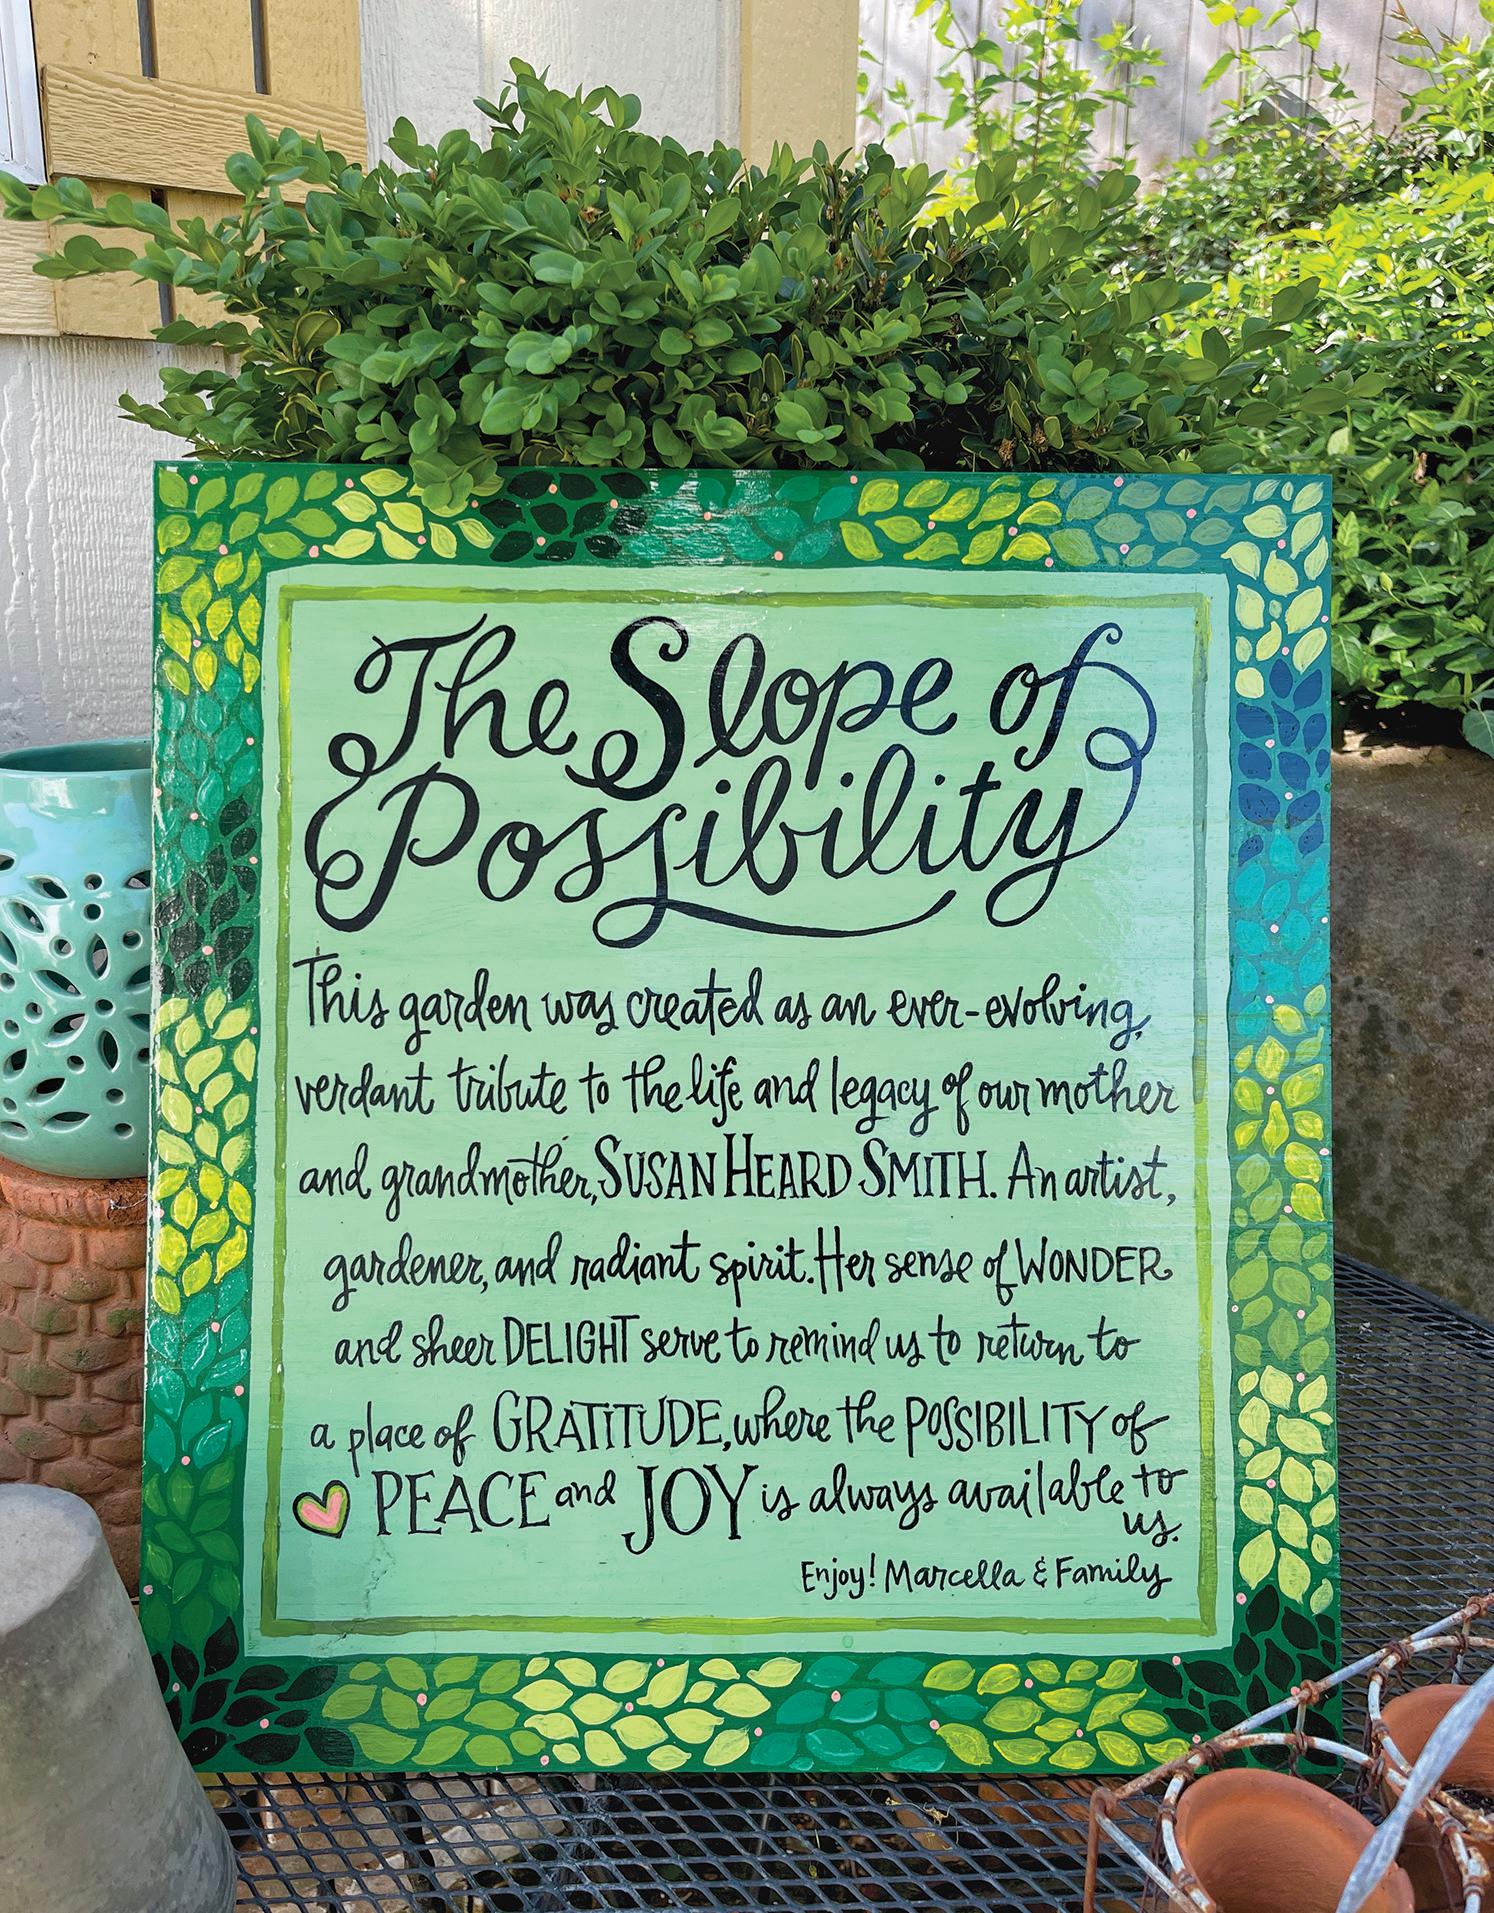 The Slope of
Possibility
This garden was created as an ever-evolving,
verdant tribute to the life and legacy of our mother
and grandmother, SUSAN HEARD SMITH. An artist,
gardener, and radiant spirit. Her sense of WONDER
and sheer DELIGHT serve to remind us to return to
a place of GRATITUDE, where the POSSIBILITY of
PEACE and JOY is always available to
us.
Enjoy! Marcella & Family